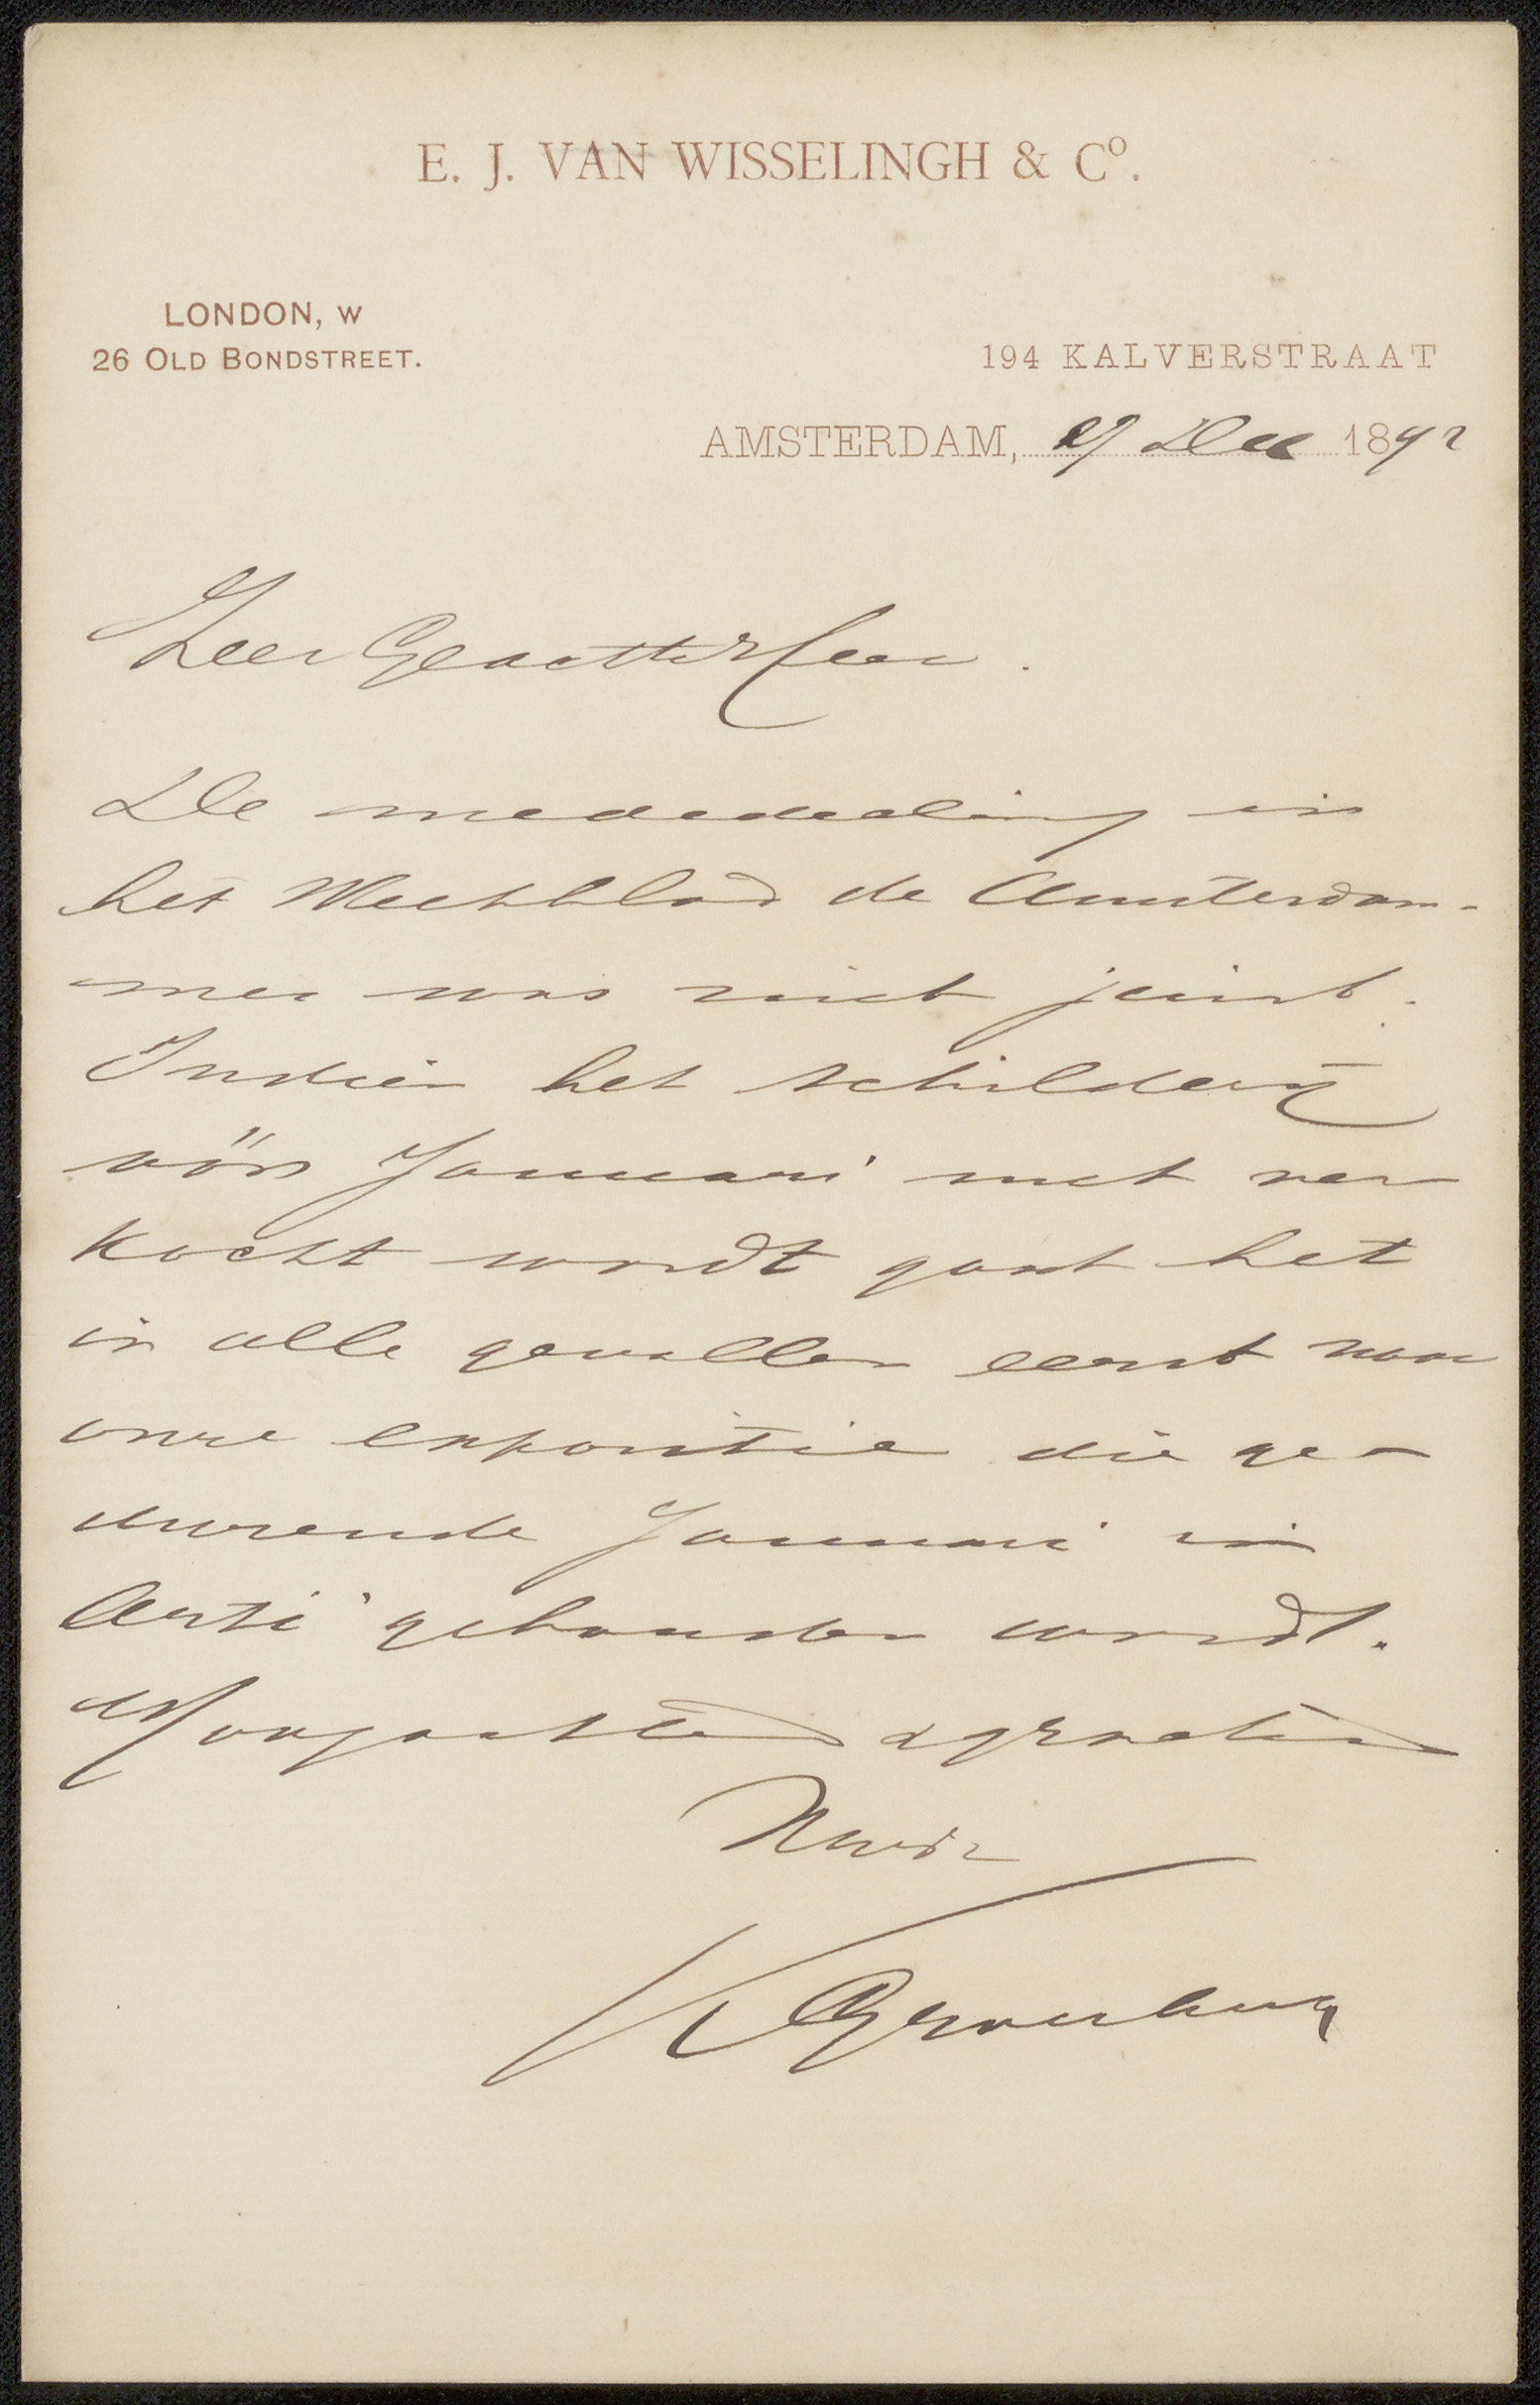 E. J. VAN WISSELINGH & Cº.
LONDON, W
26 OLD BONDSTREET.
194 KALVERSTRAAT
AMSTERDAM, 29 Dec 1892
Zeer Geachte Heer.
De mededeeling in
het Weekblad de Amsterdam-
mer was niet juist.
Indien het schilderij
vöör Januari niet ver
kocht wordt gaat het
in alle gevallen eerst naar
onze expositie die ge-
durende Januari in
Arti gehouden wordt.
Hoogachtend
UwDr
K Groesbeek